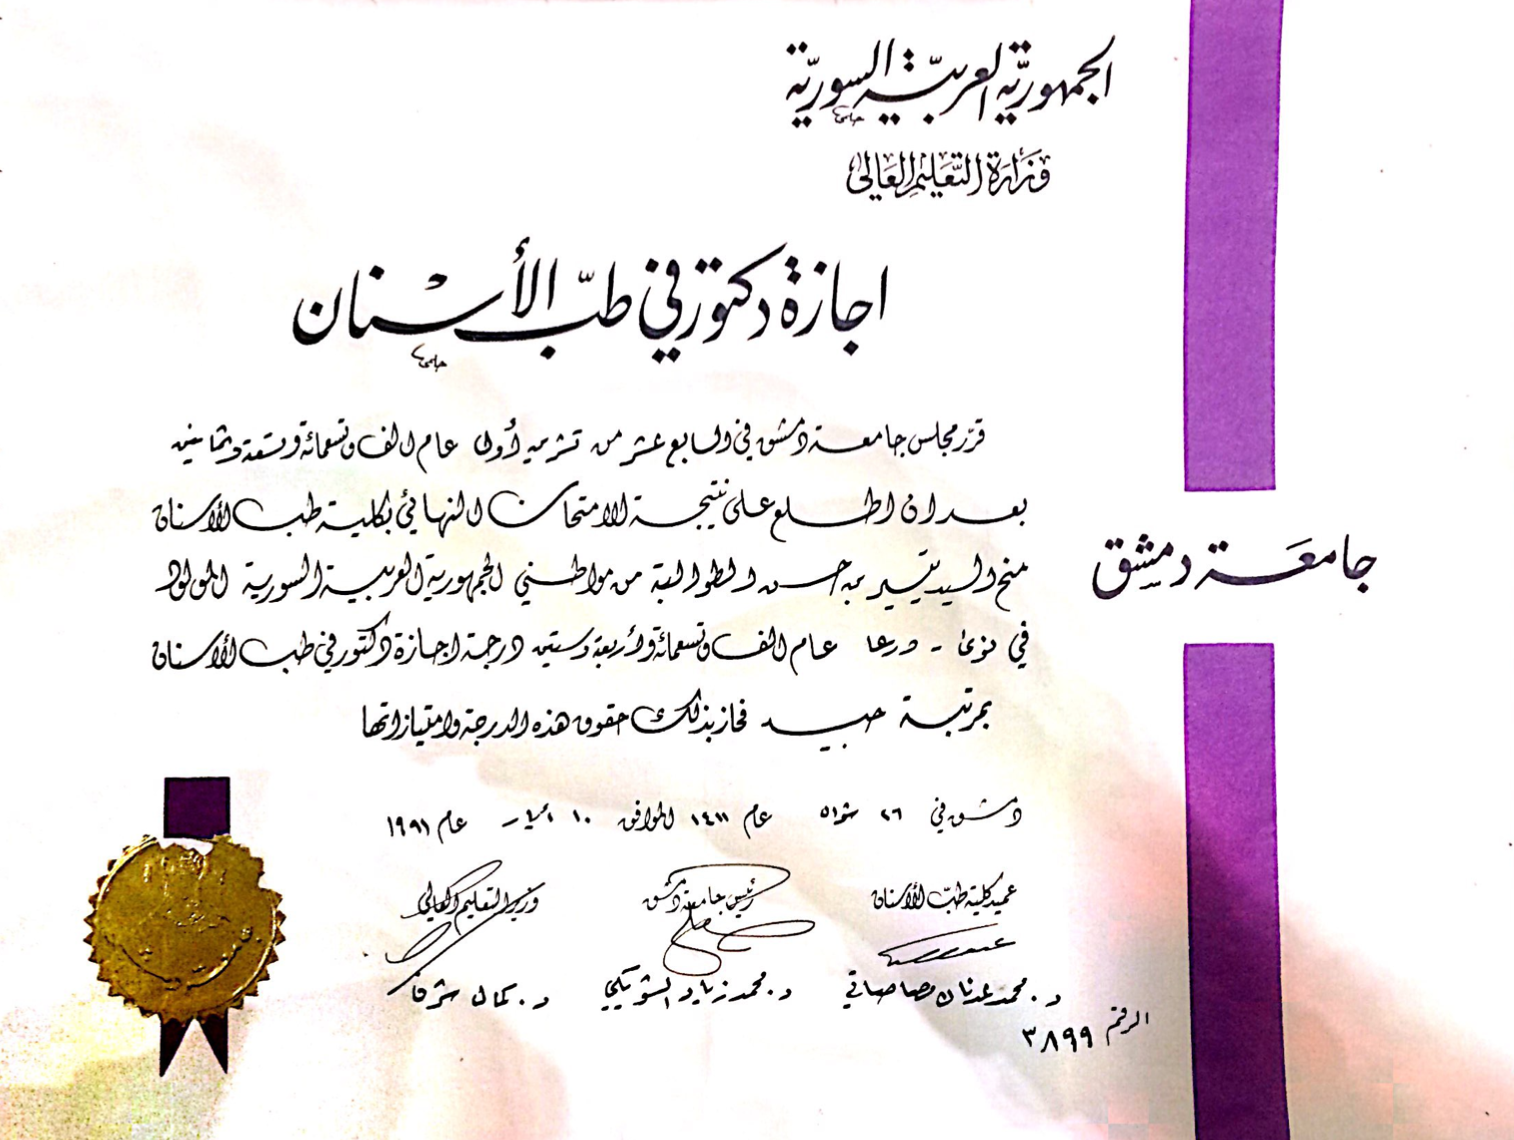 الجمهوريّة العربيّة السوريّة
وَزَارَة التَّعَليم العَالي
اجازة دكتور في طبّ الأسْنان
قرّر مجلس جامعة دمشق في السابع عشر من تشرين أول عام الف وتسعمائة وتسعة وثمانين
بعد ان اطلع على نتيجة الامتحان النهائي بكلية طب الأسنان
منح السيد تيسير بن حسن الطوالبة من مواطني الجمهورية العربية السورية المولود
في نوى - درعا عام الف وتسعمائة وأربعة وستين درجة اجازة دكتور في طب الأسنان
بمرتبة جيد فحاز بذلك حقوق هذه الدرجة وامتيازاتها
جامعَة دمشق
دمشق في ٢٦ شوال عام ١٤١١ الموافق ١٠ أيار عام ١٩٩١
عميد كلية طبّ الأسنان
رئيس جامعة دمشق
وزير التعليم العالي
د. محمد عدنان مصاصاتي
د. محمد زياد الشويكي
د. كمال شرف
الرقم ٣٨٩٩